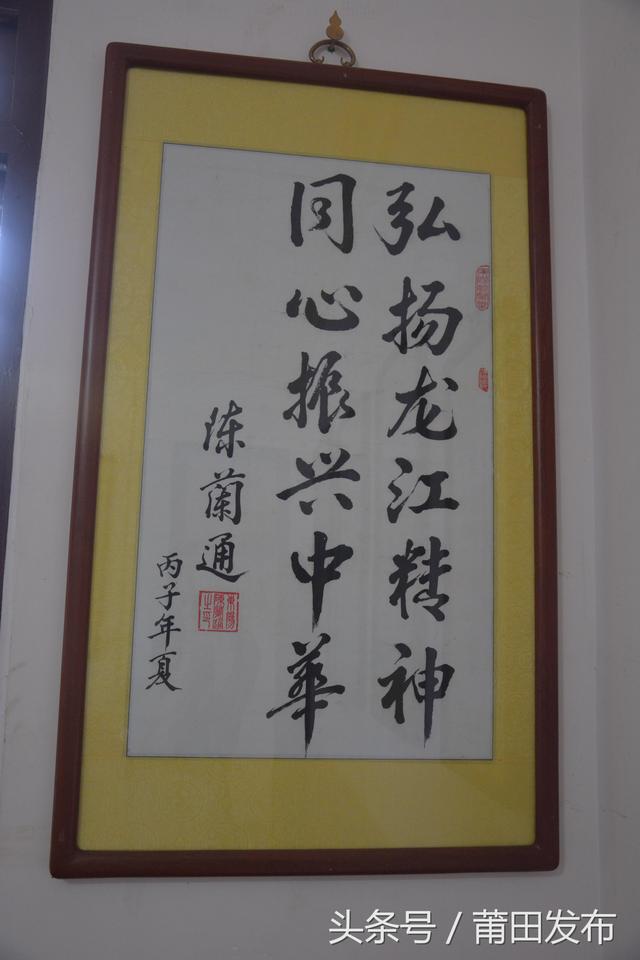 弘扬龙江精神
同心振兴中华
陈蘭通
丙子年夏
头条号 / 莆田发布